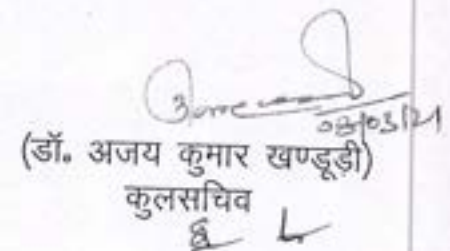 08/03/21
(डॉ० अजय कुमार खण्डूड़ी)
कुलसचिव